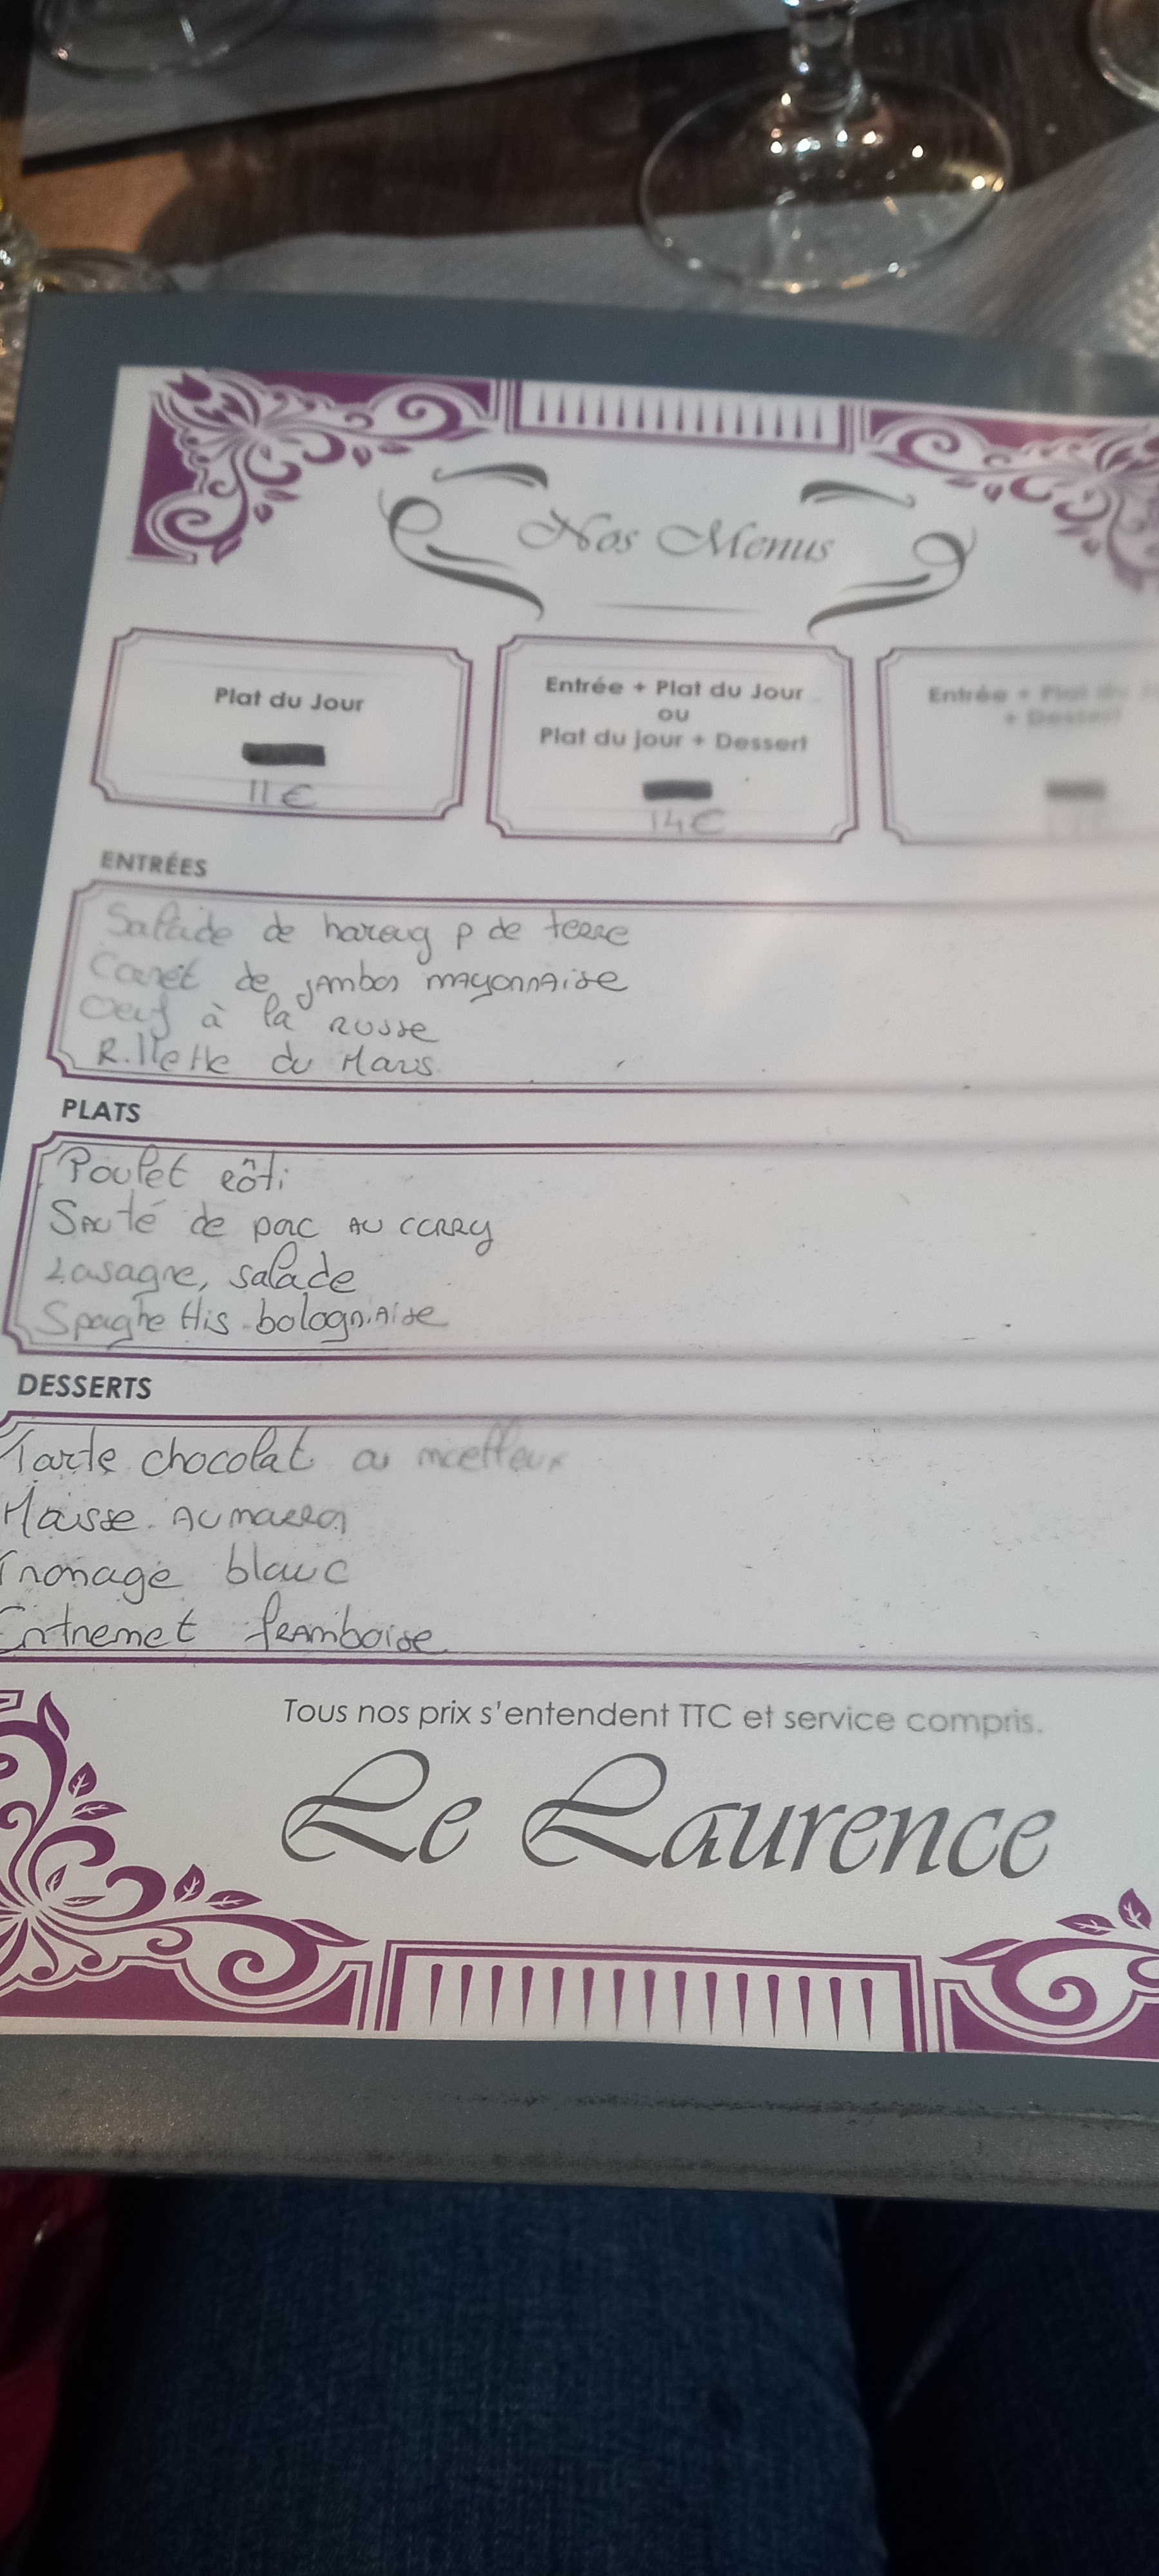 Nos Menus
Plat du Jour
11€
Entrée + Plat du Jour
ou
Plat du jour + Dessert
14€
Entrée + Plat du
+ Dessert
ENTRÉES
Salade de hareng p de terre
Cornet de jambon mayonnaise
Oeuf à la russe
Rillette du Mans
PLATS
Poulet rôti
Sauté de porc au curry
Lasagne, salade
Spaghettis bolognaise
DESSERTS
Tarte chocolat ou moelleux
Mousse au marron
Fromage blanc
Entremet framboise
Tous nos prix s'entendent TTC et service compris.
Le Laurence